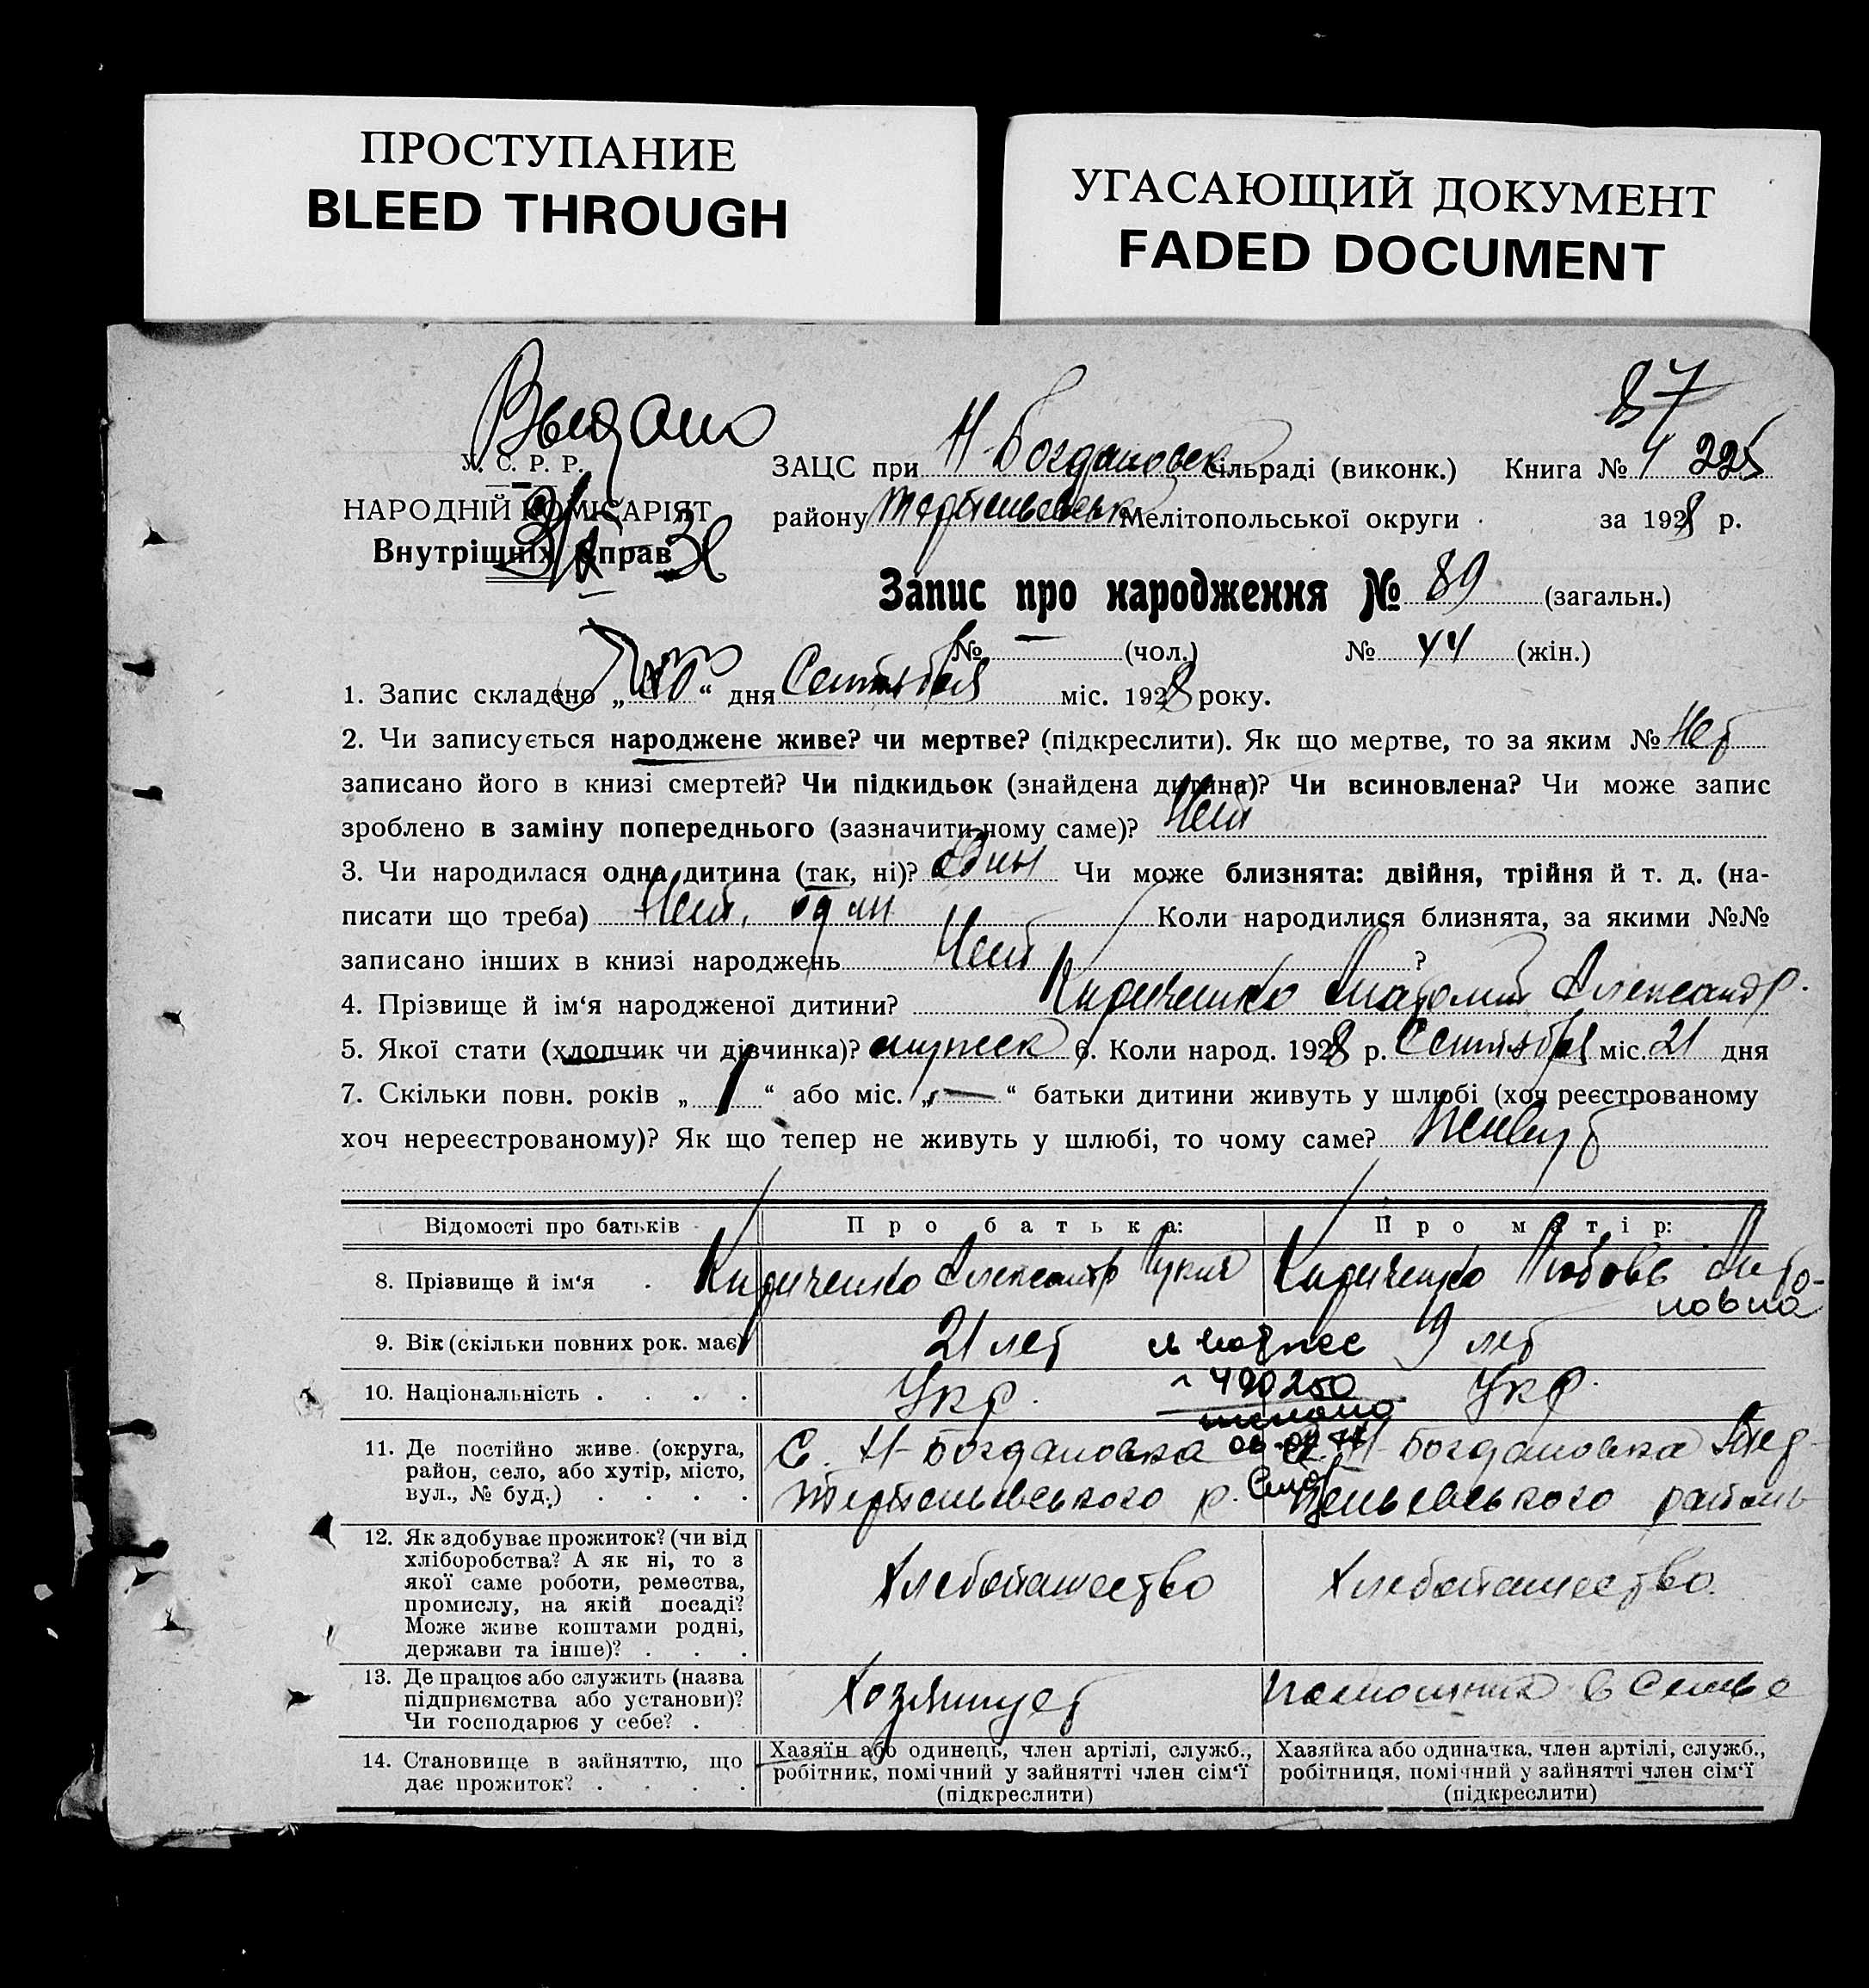 ПРОСТУПАНИЕ
BLEED THROUGH
УГАСАЮЩИЙ ДОКУМЕНТ
FADED DOCUMENT
87
Выдано
У. С. Р. Р.
НАРОДНІЙ КОМІСАРІЯТ
Внутрішніх Справ
ЗАЦС при Н-Богдановск сільраді (виконк.) Книга № 4 225
району Мелітопольської округи за 1928 р.
Запис про народження № 89 (загальн.)
№ — (чол.) № 44 (жін.)
1. Запис складено „ 30 “ дня Сентября міс. 1928 року.
2. Чи записується народжене живе? чи мертве? (підкреслити). Як що мертве, то за яким № Нет
записано його в книзі смертей? Чи підкидьок (знайдена дитина)? Чи всиновлена? Чи може запис
зроблено в заміну попереднього (зазначити чому саме)? Нет
3. Чи народилася одна дитина (так, ні)? один Чи може близнята: двійня, трійня й т. д. (на-
писати що треба) Нет, один Коли народилися близнята, за якими №№
записано інших в книзі народжень Нет ?
4. Прізвище й ім‘я народженої дитини? Кириченко Анатолий Александр.
5. Якої стати (хлопчик чи дівчинка)? мужск 6. Коли народ. 1928 р. Сентября міс. 21 дня
7. Скільки повн. років „ 1 “ або міс. „ — “ батьки дитини живуть у шлюбі (хоч реєстрованому
хоч нереєстрованому)? Як що тепер не живуть у шлюбі, то чому саме? живут
Відомості про батьків Про батька: Про матір:
8. Прізвище й ім‘я . Кириченко Александр Кириченко Любовь
9. Вік (скільки повних рок. має) 21 лет 19 лет
10. Національність . . . . Укр. 490250 Укр.
11. Де постійно живе (округа, район, село, або хутір, місто, вул., № буд.) . . . .
С. Н-Богдановка Н-Богдановка
р. района
12. Як здобуває прожиток? (чи від
хліборобства? А як ні, то з
якої саме роботи, ремества,
промислу, на якій посаді?
Може живе коштами родні,
держави та інше)? . . .
Хлебопашество Хлебопашество.
13. Де працює або служить (назва
підприємства або установи)?
Чи господарює у себе? .
Хозяинует в семье
14. Становище в зайняттю, що
дає прожиток? . . . .
Хазяїн або одинець, член артілі, служб.,
робітник, помічний у зайнятті член сім‘ї
(підкреслити)
Хазяйка або одиначка, член артілі, служб.,
робітниця, помічний у зайнятті член сім‘ї
(підкреслити)